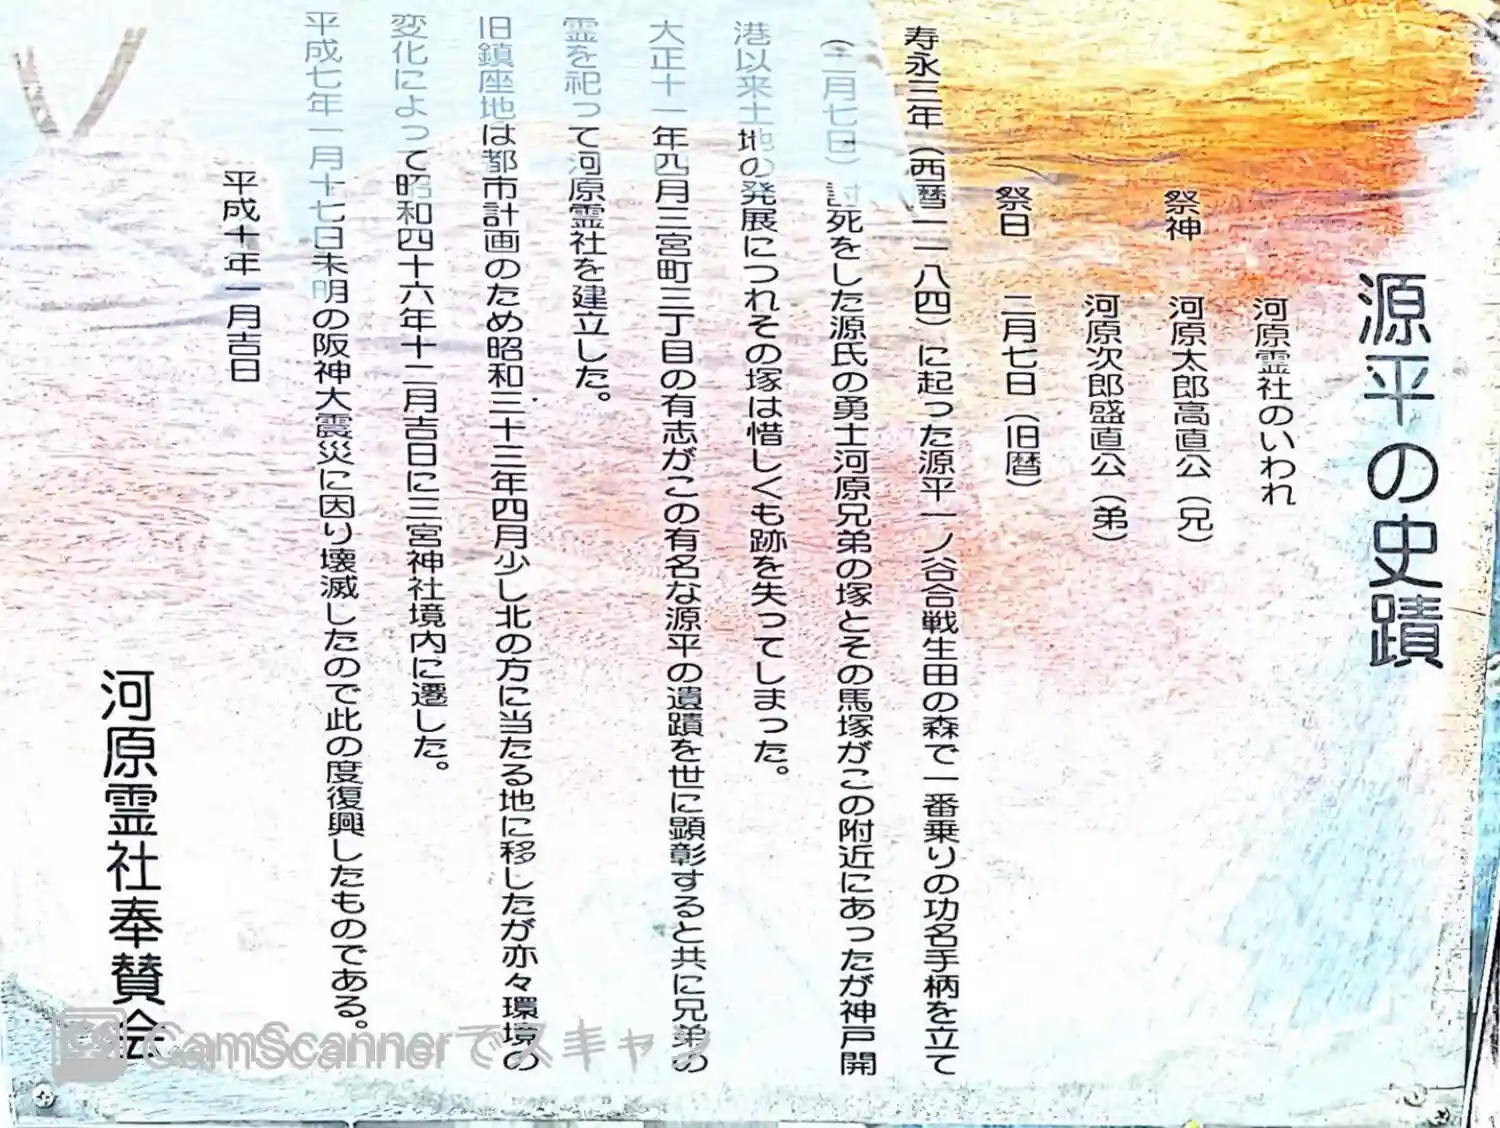 源平の史蹟
河原霊社のいわれ
祭神 河原太郎高直公（兄）
河原次郎盛直公（弟）
祭日 二月七日（旧暦）
寿永三年（西暦一一八四）に起った源平一ノ谷合戦生田の森で一番乗りの功名手柄を立て
（二月七日）討死をした源氏の勇士河原兄弟の塚とその馬塚がこの附近にあったが神戸開
港以来土地の発展につれその塚は惜しくも跡を失ってしまった。
大正十一年四月三宮町三丁目の有志がこの有名な源平の遺蹟を世に顕彰すると共に兄弟の
霊を祀って河原霊社を建立した。
旧鎮座地は都市計画のため昭和三十三年四月少し北の方に当たる地に移したが亦々環境の
変化によって昭和四十六年十二月吉日に三宮神社境内に遷した。
平成七年一月十七日未明の阪神大震災に因り壊滅したので此の度復興したものである。
平成十年一月吉日
河原霊社奉賛会
CamScannerでスキャン